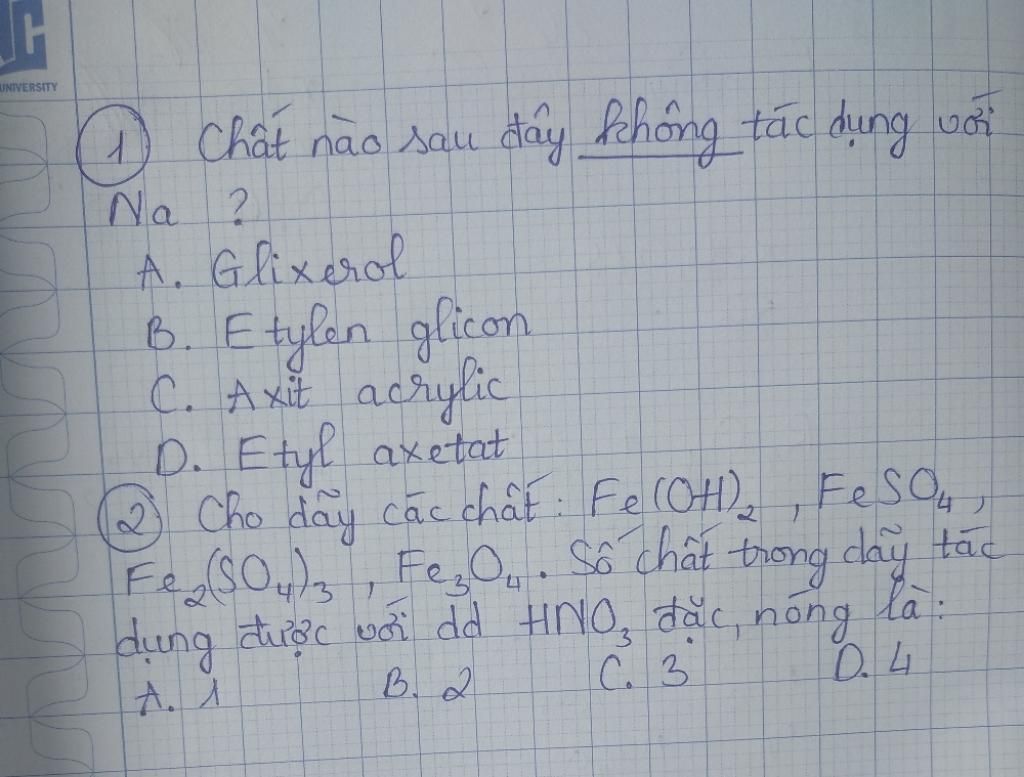 UNIVERSITY
① Chất nào sau đây không tác dụng với
Na ?
A. Glixerol
B. Etylen glicon
C. Axit acrylic
D. Etyl axetat
② Cho dãy các chất : Fe(OH)₂ , FeSO₄ ,
Fe₂(SO₄)₃ , Fe₃O₄. Số chất trong dãy tác
dụng được với dd HNO₃ đặc, nóng là:
A. 1 B. 2 C. 3 D. 4